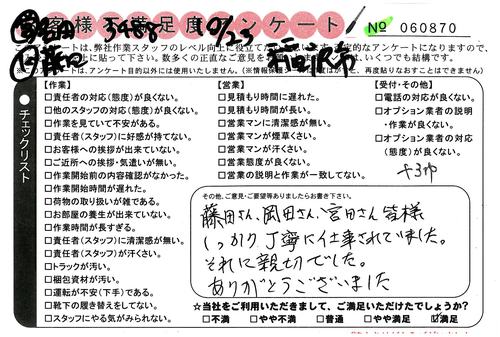 お客様不満足度アンケート
3488 10/23
No 060870
このアンケートは、弊社作業スタッフのレベル向上に役立て
福沢市
に貼って下さい。数多くの正直なご意見を
いつでも結構です。
※このアンケートは、アンケート目的以外には使用いたしません。
再度貼りなおすことはできません
チェックリスト
【作業】
□責任者の対応(態度)が良くない。
□他のスタッフの対応(態度)が良くない。
□作業を見ていて不安がある。
□責任者(スタッフ)に好感が持てない。
□お客様への挨拶が出来ていない。
□ご近所への挨拶・気遣いが無い。
□作業開始前の内容確認がなかった。
□作業開始時間が遅れた。
□荷物の取り扱いが雑である。
□お部屋の養生が出来ていない。
□作業時間が長すぎる。
□責任者(スタッフ)に清潔感が無い。
□責任者(スタッフ)が汗くさい。
□トラックが汚い。
□梱包資材が汚い。
□運転が不安(下手)である。
□靴下の履き替えをしてない。
□スタッフにやる気がみられない。
【営業】
□見積もり時間に遅れた。
□見積もり時間が長い。
□営業マンに清潔感が無い。
□営業マンが煙草くさい。
□営業マンが汗くさい。
□営業態度が良くない。
□営業の説明と作業が一致してない。
【受付・その他】
□電話の対応が良くない。
□オプション業者の説明
・作業が良くない。
□オプション業者の対応
(態度)が良くない。
その他、ご意見・ご要望等ありましたらお書き下さい。
藤田さん、岡田さん、宮田さん皆様
しっかり丁寧に仕事されていました。
それに親切でした。
ありがとうございました
☆当社をご利用いただきまして、ご満足いただけたでしょうか?
□不満 □やや不満 □普通 □やや満足 ☑満足